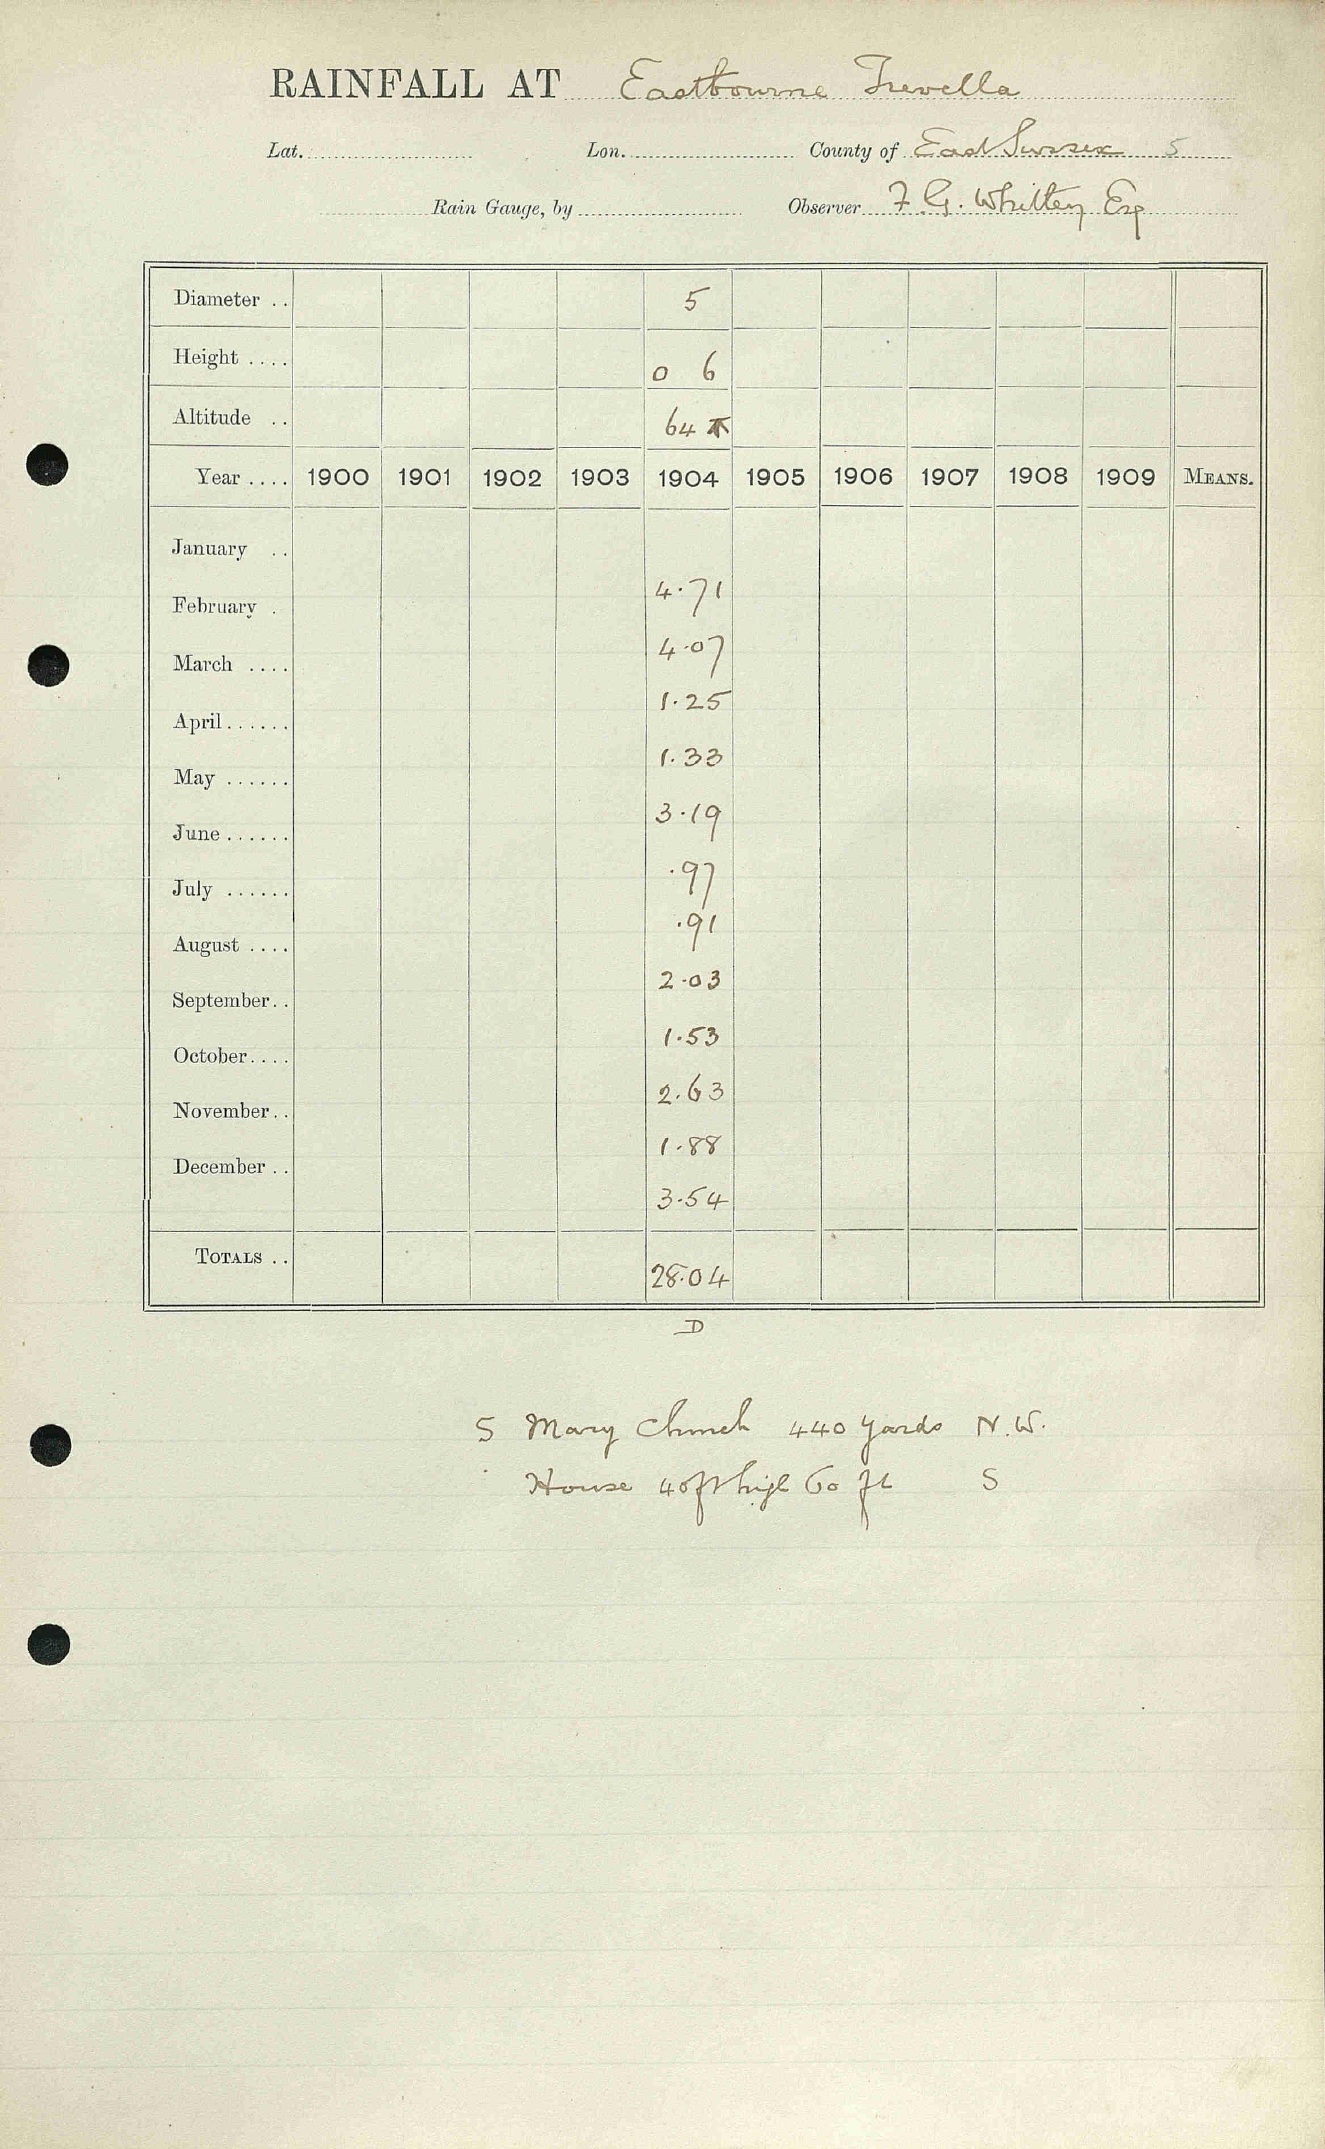 RAINFALL AT Eastbourne Trevella
Lat. Lon. County of East Sussex 5
Rain Gauge, by Observer F. G. Whitley Esq
Diameter .. 5
Height .... 0 6
Altitude .. 64
Year .... 1900 1901 1902 1903 1904 1905 1906 1907 1908 1909 MEANS.
January .. 4.71
February . 4.07
March .... 1.25
April...... 1.33
May ...... 3.19
June ...... .97
July ...... .91
August .... 2.03
September.. 1.53
October.... 2.63
November.. 1.88
December .. 3.54
TOTALS .. 28.04
D
S Mary Church 440 yards N.W.
House 40ft high 60 ft S